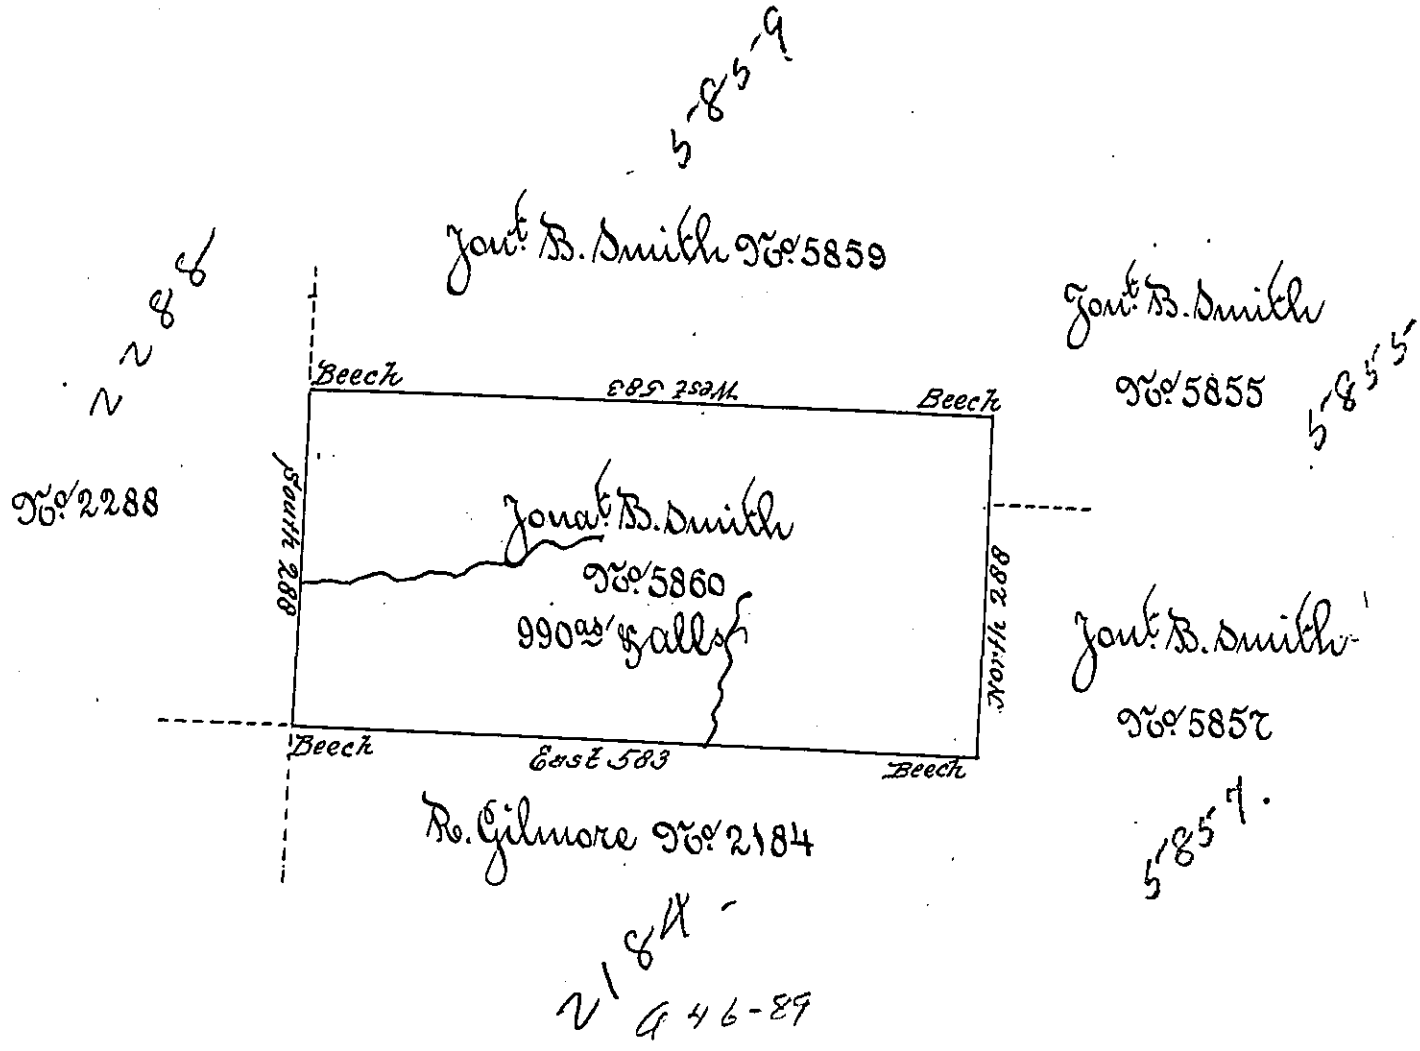 5859
Jont. B. Smith No. 5859
2288
Jont. B. Smith
No. 5855
5855
Beech
West 583
Beech
No. 2288
South 288
Jonat. B. Smith
No. 5860
990 as & alls
North 288
Jont. B. Smith
No. 5857
5857.
Beech
East 583
Beech
R. Gilmore No. 2184
2184
G 46-89